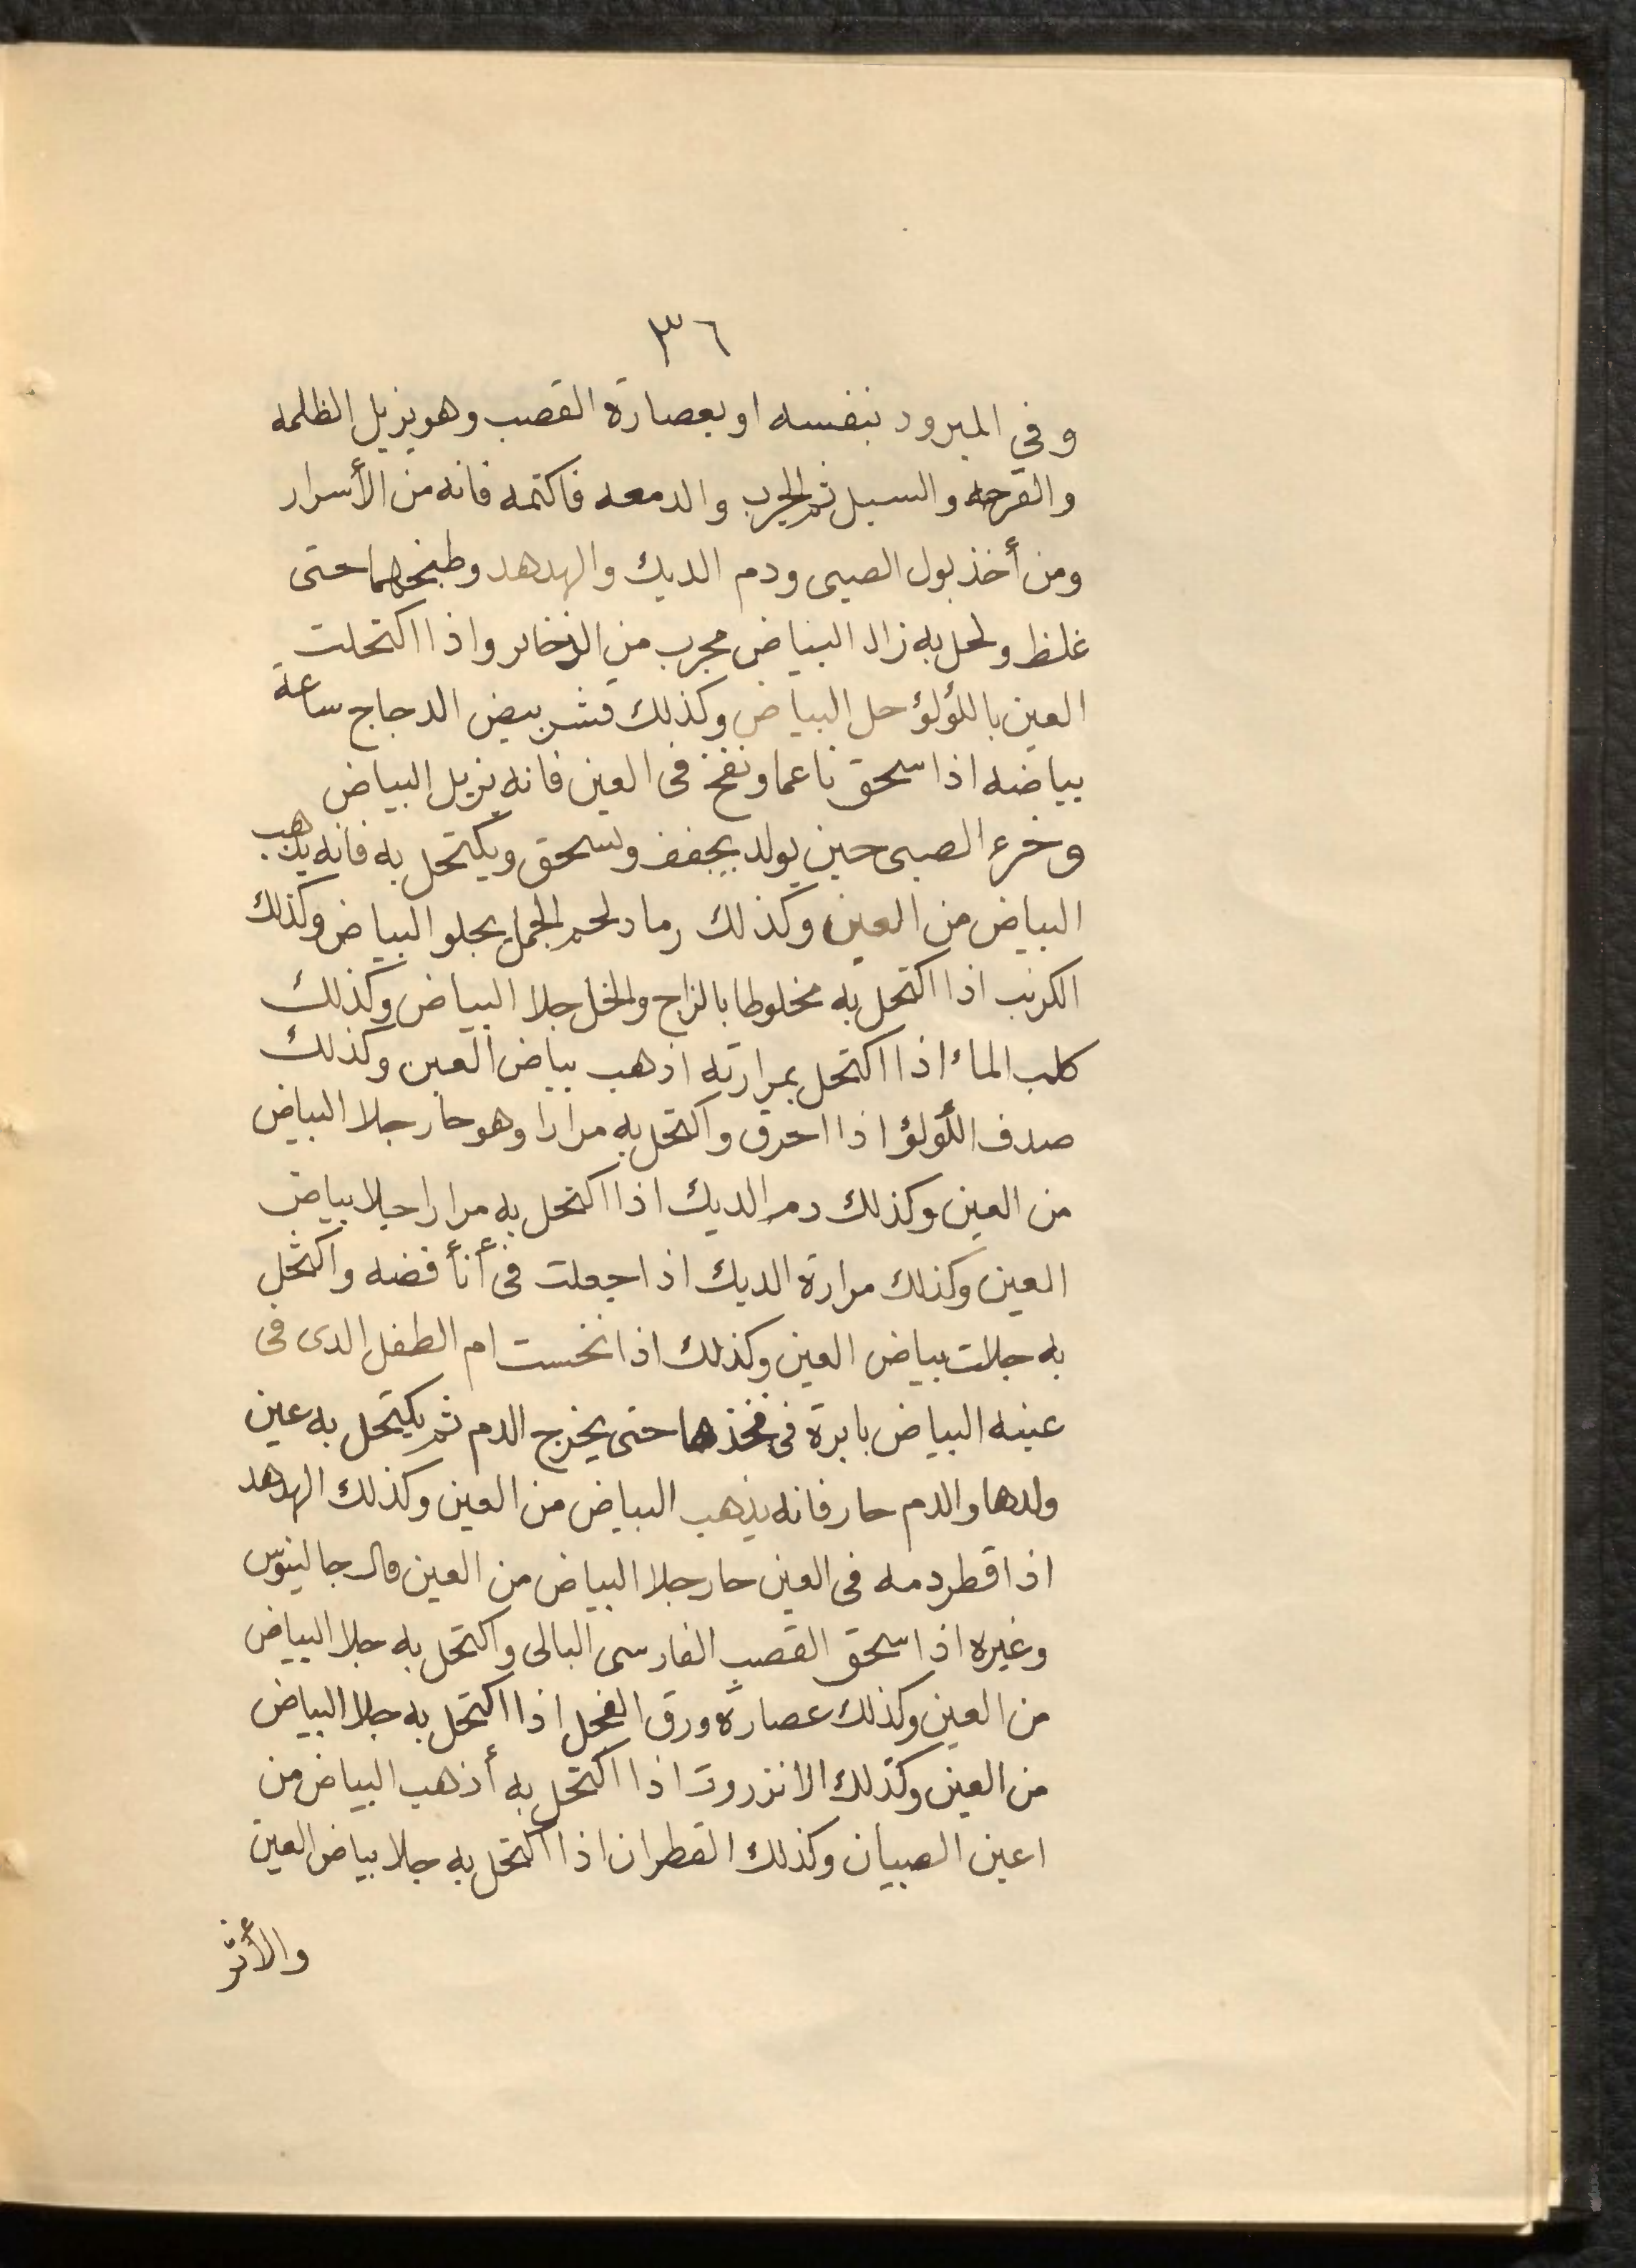 ٣٦
وفي المبرود بنفسه او بعصارة القصب وهو يزيل الظلمه
والقرحه والسبل ثم الجرب والدمعه فاكتمه فانه من الأسرار
ومن أخذ بول الصبي ودم الديك والهدهد وطبخهما حتى
غلظ وكحل به زال البياض مجرب من الذخائر واذا اكتحلت
العين باللؤلؤ حل البياض وكذلك قشر بيض الدجاج ساعة
بياضه اذا سحق ناعما ونفخ فى العين فانه يزيل البياض
وخرء الصبى حين يولد يجفف ويسحق ويكتحل به فانه يذهب
البياض من العين وكذلك رماد لحم الجمل يجلو البياض وكذلك
الكرنب اذا اكتحل به مخلوطا بالزاج والخل جلا البياض وكذلك
كلب الماء اذا اكتحل بمرارته اذهب بياض العين وكذلك
صدف اللؤلؤ اذا احرق واكتحل به مرارا وهو حار جلا البياض
من العين وكذلك دم الديك اذا اكتحل به مرارا جلا بياض
العين وكذلك مرارة الديك اذا جعلت فى أنأ فضه واكتحل
به جلات بياض العين وكذلك اذا نخست ام الطفل الدى فى
عينه البياض بابرة فى فخذها حتى يخرج الدم ثم يكتحل به عين
ولدها والدم حار فانه يذهب البياض من العين وكذلك الهدهد
اذا قطر دمه فى العين حار جلا البياض من العين قال جالينوس
وغيره اذا سحق القصب الفارسى البالى واكتحل به جلا البياض
من العين وكذلك عصارة ورق الفجل اذا اكتحل به جلا البياض
من العين وكذلك الانزروت اذا اكتحل به أذهب البياض من
اعين الصبيان وكذلك القطران اذا اكتحل به جلا بياض العين
والأثر